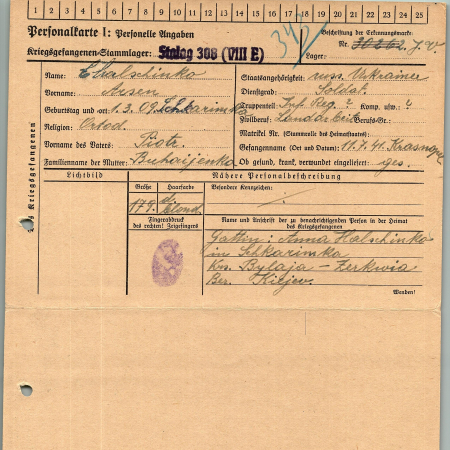 1 2 3 4 5 6 7 8 9 10 11 12 13 14 15 16 17 18 19 20 21 22 23 24 25
Personalkarte I: Personelle Angaben
Kriegsgefangenen-Stammlager: Stalag 308 (VIII E)
Beschriftung der Erkennungsmarke:
Nr.
Lager:
Name: Chalschinko
Vorname: Arsen
Geburtstag und -ort: 1.3.09. Schkarimka
Religion: Ortod.
Vorname des Vaters: Piotr.
Familienname der Mutter: Buhaijenko
Staatsangehörigkeit: russ. Ukrainer
Dienstgrad: Soldat.
Truppenteil: Inf. Reg. ? Komp. usw.: ?
Zivilberuf: Berufs-Gr.:
Matrikel Nr. (Stammrolle des Heimatstaates):
Gefangennahme (Ort und Datum): 11.7.41
Ob gesund, krank, verwundet eingeliefert: ges.
Des Kriegsgefangenen
Lichtbild
Nähere Personalbeschreibung
Größe Haarfarbe Besondere Kennzeichen:
179. d. blond
Fingerabdruck
des rechten! Zeigefingers
Name und Anschrift der zu benachrichtigenden Person in der Heimat
des Kriegsgefangenen
Gattin: Anna Halschinko
in Schkarimka
Krs. Bylaja - Zerkwia
Bez. Kiejew.
Wenden!